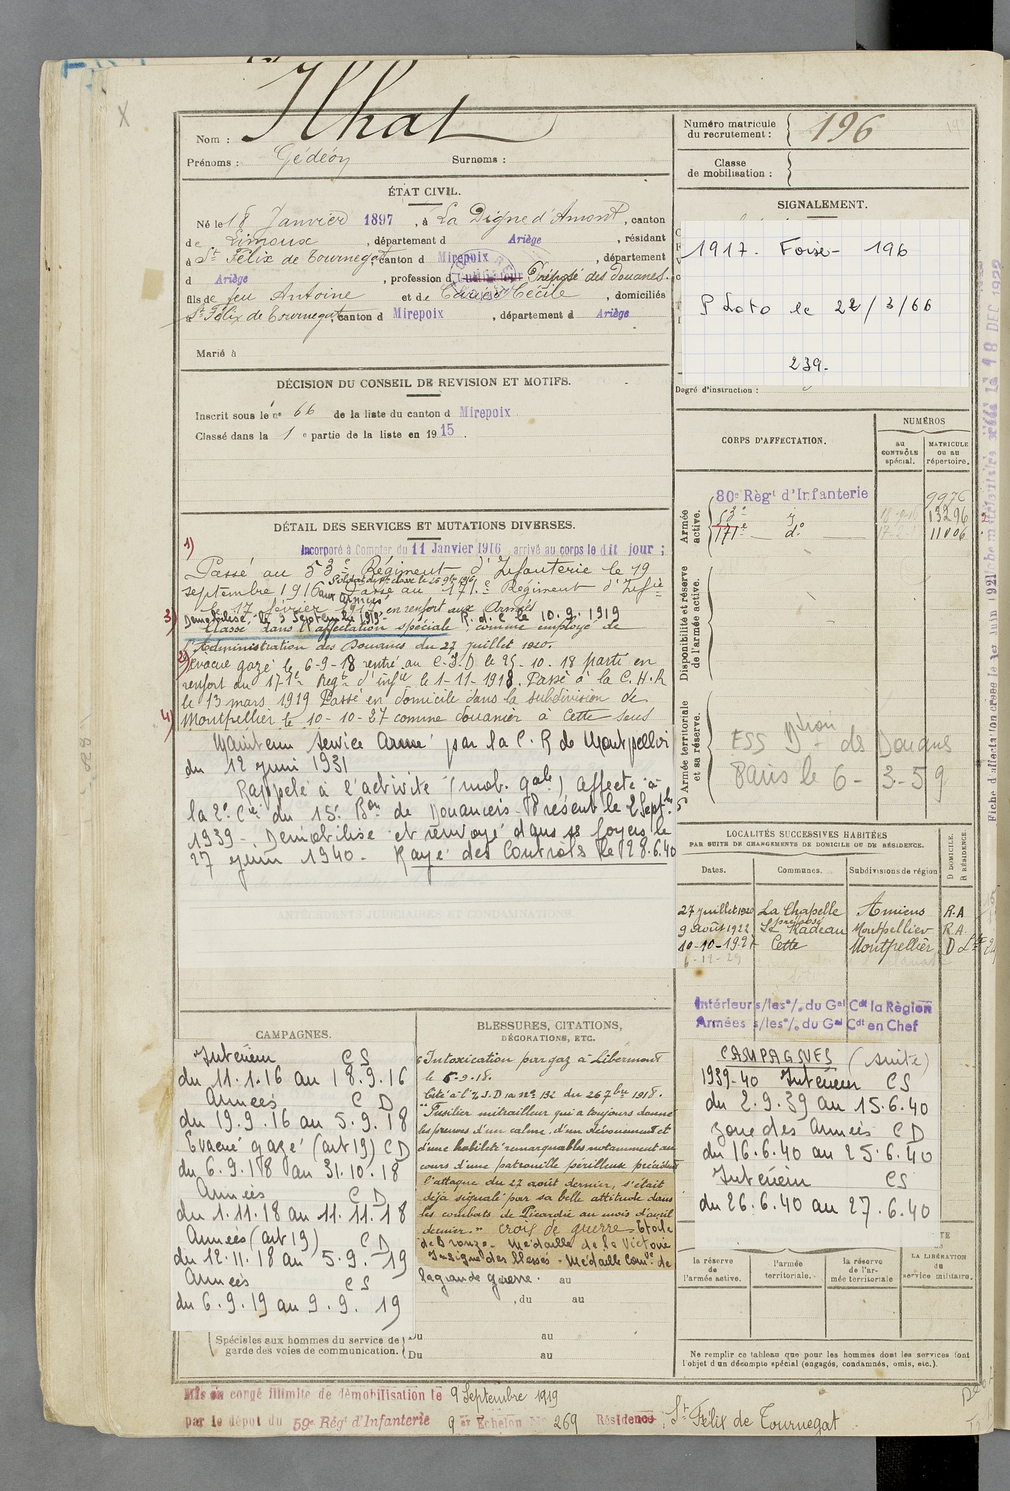 Nom : Ilhat
Prénoms : Gédéon Surnoms :
ÉTAT CIVIL.
Né le 18 Janvier 1897, à La Digne d'Amont, canton
de Limoux, département d Ariège, résidant
à St Félix de Tournegat canton d Mirepoix, département
d Ariège, profession d Préposé des Douanes.
fils de feu Antoine et de Cécile, domiciliés
St Félix de Tournegat, canton d Mirepoix, département d Ariège
Marié à
DÉCISION DU CONSEIL DE REVISION ET MOTIFS.
Inscrit sous le n° 66 de la liste du canton d Mirepoix
Classé dans la 1 e partie de la liste en 1915.
DÉTAIL DES SERVICES ET MUTATIONS DIVERSES.
1)
Incorporé à Compter du 11 Janvier 1916 arrivé au corps le dit jour ;
Passé au 53e Régiment d'Infanterie le 19
septembre 1916 Passé au 171e Régiment d'Infie
aux Armées
le 17 février 1917, en renfort aux Armées
3) Démobilisé le 9 Septembre 1919- R.d.C le 10.9.1919
Classé dans l'affectation spéciale comme employé de
l'Administration des Douanes du 27 juillet 1920.
2) évacué gazé le 6-9-18 rentré au C.I.D le 25-10-18 parti en
renfort au 171e Regt d'infie le 1-11-1918. Passé à la C.H.R
le 13 mars 1919 Passé en domicile dans la subdivision de
4) Montpellier le 10-10-27 comme douanier à Cette
Maintenu service Armé par la C.R de Montpellier
du 12 juin 1931
Rappelé à l'activité (mob. gale) affecté à
la 2e Cie du 15e Bon de Douaniers. Présent le 2 Septbre
1939-. Démobilisé et renvoyé dans ses foyers le
27 juin 1940- Rayé des Contrôles le 28.6.40
ANTÉCÉDENTS JUDICIAIRES ET CONDAMNATIONS.
CAMPAGNES.
Intérieur CS
du 11.1.16 au 18.9.16
Armées CD
du 19.9.16 au 5.9.18
Evacué gazé (art 19) CD
du 6.9.18 au 31.10.18
Armées CD
du 1.11.18 au 11.11.18
Armées (art 19) CD
du 12.11.18 au 5.9.19
Armées CS
du 6.9.19 au 9.9.19
Spéciales aux hommes du service de
garde des voies de communication.
Du au
Du au
BLESSURES, CITATIONS,
DÉCORATIONS, ETC.
Intoxication par gaz à Libermont
le 5-9-18.
Cité à l'I.D n° 132 du 26 7bre 1918.
"Fusilier mitrailleur qui a toujours donné
les preuves d'un calme, d'un dévouement et
d'une habileté remarquables notamment au
cours d'une patrouille périlleuse précédant
l'attaque du 27 août dernier, s'était
déjà signalé par sa belle attitude dans
les combats de Picardie au mois d'avril
dernier." Croix de guerre - Etoile
de Bronze. Médaille de la Victoire
Insigne des blessés - Médaille Comve de
la grande guerre. au
, du au
Numéro matricule
du recrutement : 196
Classe
de mobilisation :
SIGNALEMENT.
1917. Foix- 196
Photo le 22/3/66
239.
Degré d'instruction :
CORPS D'AFFECTATION.
NUMÉROS
au
CONTRÔLE
spécial.
MATRICULE
OU AU
répertoire.
Armée
active.
80e Règt d'Infanterie 9976
53e 13296
171e do 11006
Disponibilité et réserve
de l'armée active.
Armée territoriale
et sa réserve.
ESS Dtion des Douanes
Paris le 6-3-59
LOCALITÉS SUCCESSIVES HABITÉES
PAR SUITE DE CHANGEMENTS DE DOMICILE OU DE RÉSIDENCE.
Dates. Communes. Subdivisions de région D DOMICILE. R RÉSIDENCE.
27 juillet 1920 La Chapelle Amiens R.A
9 août 1922 Montpellier R.A.
10-10-1927 Cette Montpellier D
Intérieur s/les %. du Gal Cdt la Règion
Armées s/les %. du Gal Cdt en Chef
CAMPAGNES (suite)
1939-40 Intérieur CS
du 2.9.39 au 15.6.40
zone des Armées CD
du 16.6.40 au 25.6.40
Intérieur CS
du 26.6.40 au 27.6.40
la réserve
de
l'armée active.
l'armée
territoriale.
la réserve
de l'ar-
mée territoriale
LA LIBÉRATION
du
service militaire.
Ne remplir ce tableau que pour les hommes dont les services font
l'objet d'un décompte spécial (engagés, condamnés, omis, etc.).
Mis en congé illimité de démobilisation le 9 Septembre 1919
par le dépot du 59e Régt d'Infanterie 9e Echelon N° 269 Résidence : St Félix de Tournegat